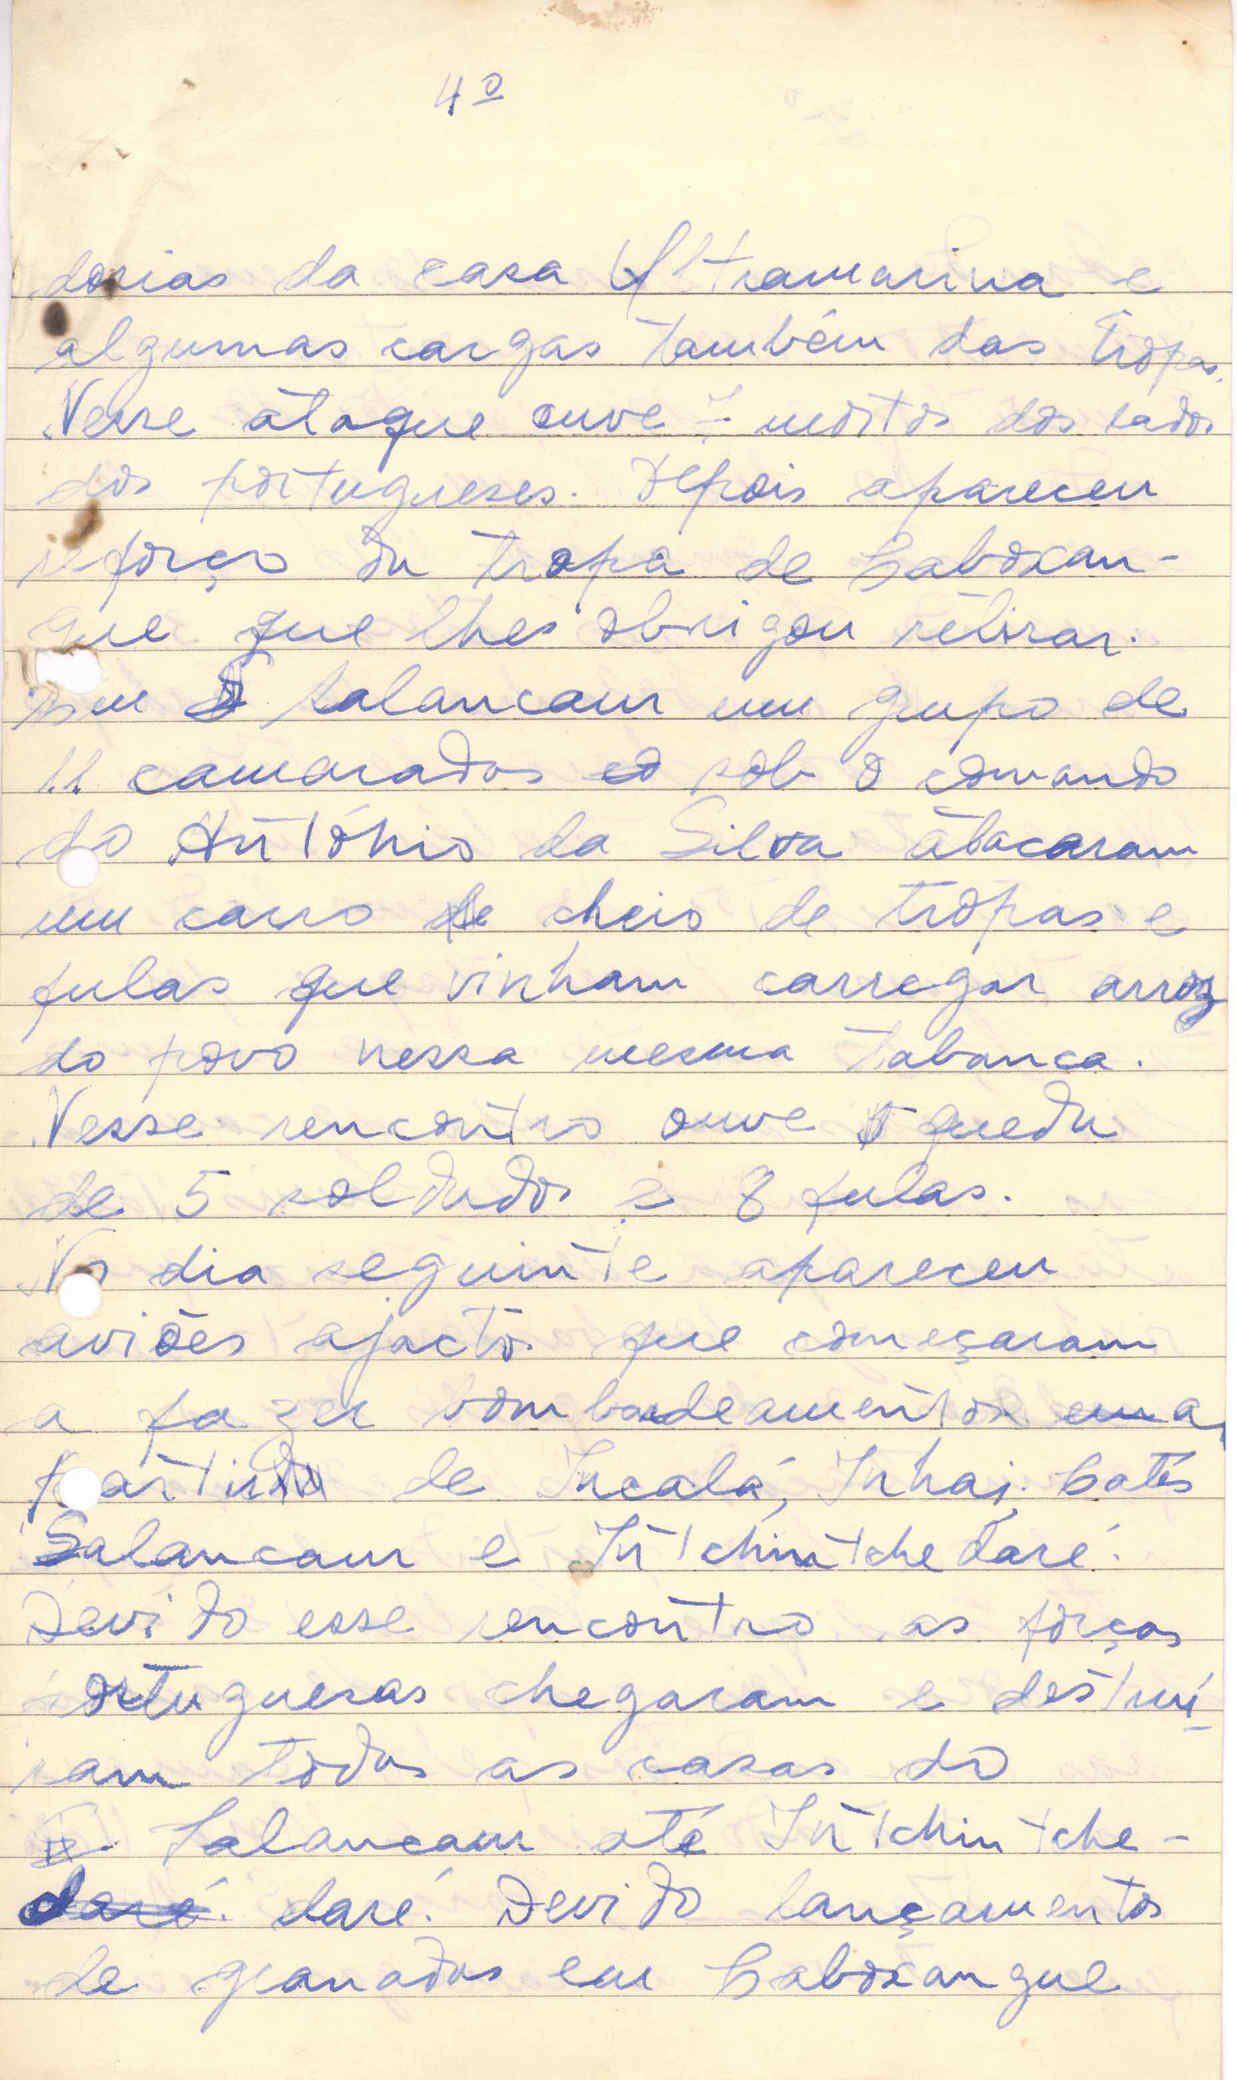 4º
dorias da casa Ultramarina e
algumas cargas também das tropas.
Nesse àtaque ouve mortos dos lados
dos portugueses. Depois apareceu
reforço da tropa de Caboxan-
gue que lhes obrigou retirar.
Em Salancaur um grupo de
11 camaradas sob o comando
do António da Silva àtacaram
um carro cheio de tropas e
fulas que vinham carregar arroz
do povo nessa mesma tabanca.
Nesse rencontro ouve queda
de 5 soldados e 8 fulas.
No dia seguinte apareceu
aviões ajacto que começaram
a fazer bombardeamentos a
partir de Incalá, Inhai, Catés
Salancaur e Intchintchedaré.
Devido esse rencontro as forças
portuguesas chegaram e destruí-
ram todas as casas do
Salancaur até Intchintche-
daré. Devido lançamentos
de granadas em Caboxangue